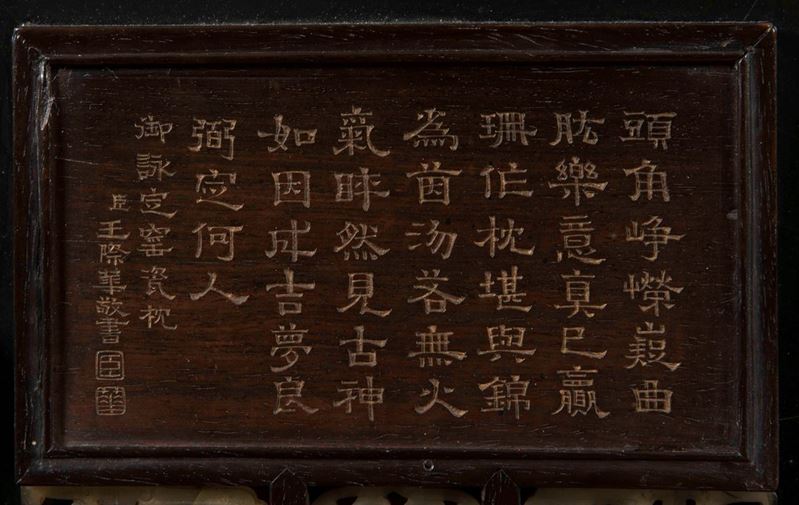 頭角崢嶸嶷曲
肱樂意真已贏
珊作枕堪與錦
為茵汤若無火
氣盎然見古神
如因成吉夢良
弼定何人
御詠定窰瓷枕
臣王際華敬書